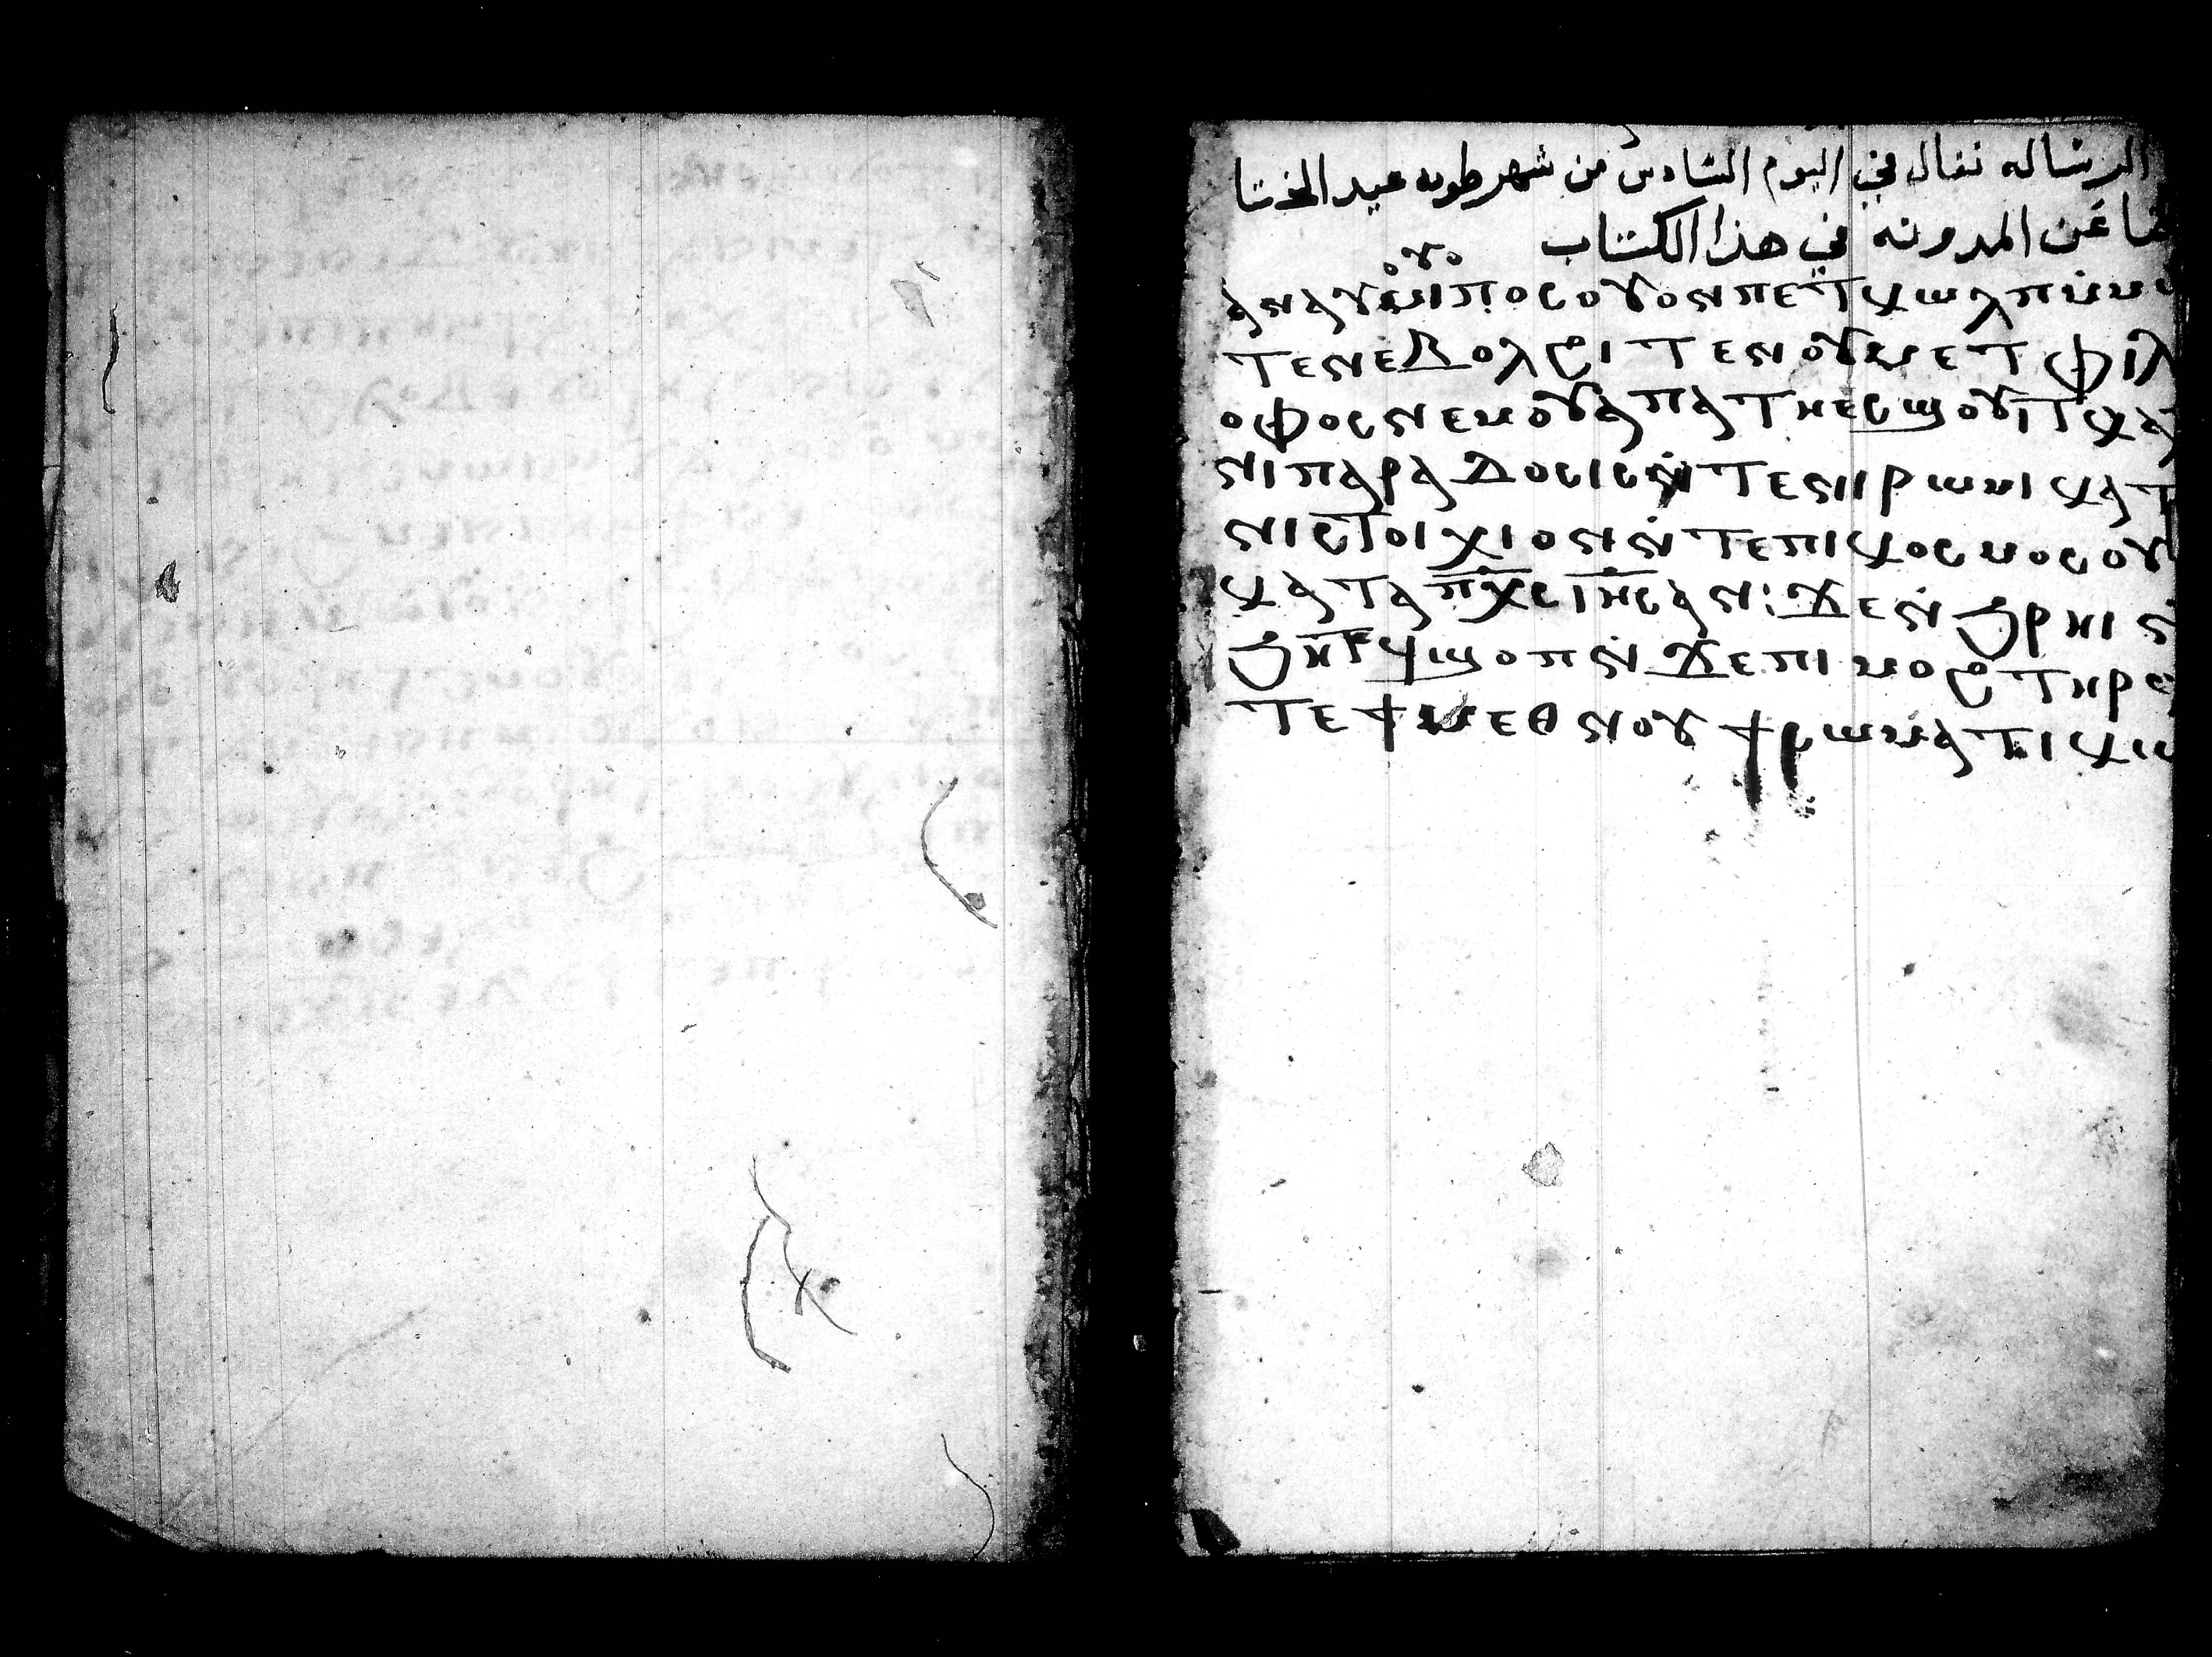 البرساله تقال في اليوم السادس من شهر طوبه عيد الختا
عن المدونه في هذا الكتاب
ⲁⲛⲁⲩ ⲙⲏⲡⲟⲥ ⲟⲩⲟⲛ ⲡⲉⲧⲕⲱⲗⲡ ⲙ̀ⲙⲱ
ⲧⲉⲛ ⲉⲃⲟⲗϩⲓⲧⲉⲛ ⲟⲩⲙⲉⲧⲫⲓⲗ
ⲟⲫⲟⲥ ⲛⲉⲙ ⲟⲩⲁⲡⲁⲧⲏ ⲉⲥϣⲟⲩⲓⲧ ⲕⲁⲧ
ⲛⲓⲡⲁⲣⲁⲇⲟⲥⲓⲥ ⲛ̀ⲧⲉ ⲛⲓⲣⲱⲙⲓ ⲕⲁⲧ
ⲛⲓⲥⲧⲟⲓⲭⲓⲟⲛ ⲛ̀ⲧⲉ ⲡⲓⲕⲟⲥⲙⲟⲥ ⲟⲩ
ⲕⲁⲧⲁ ⲡⲭⲥ ⲓⲏⲥ ⲁⲛ: ϫⲉ ⲛ̀ϩⲣⲏⲓ ⲛ̀
ϩⲏⲧϥ ϥϣⲟⲡ ⲛ̀ϫⲉ ⲡⲓⲙⲟϩ ⲧⲏⲣϥ
ⲧⲉ ϯⲙⲉⲑⲛⲟⲩϯ ⲥⲱⲙⲁⲧⲓⲕⲱ